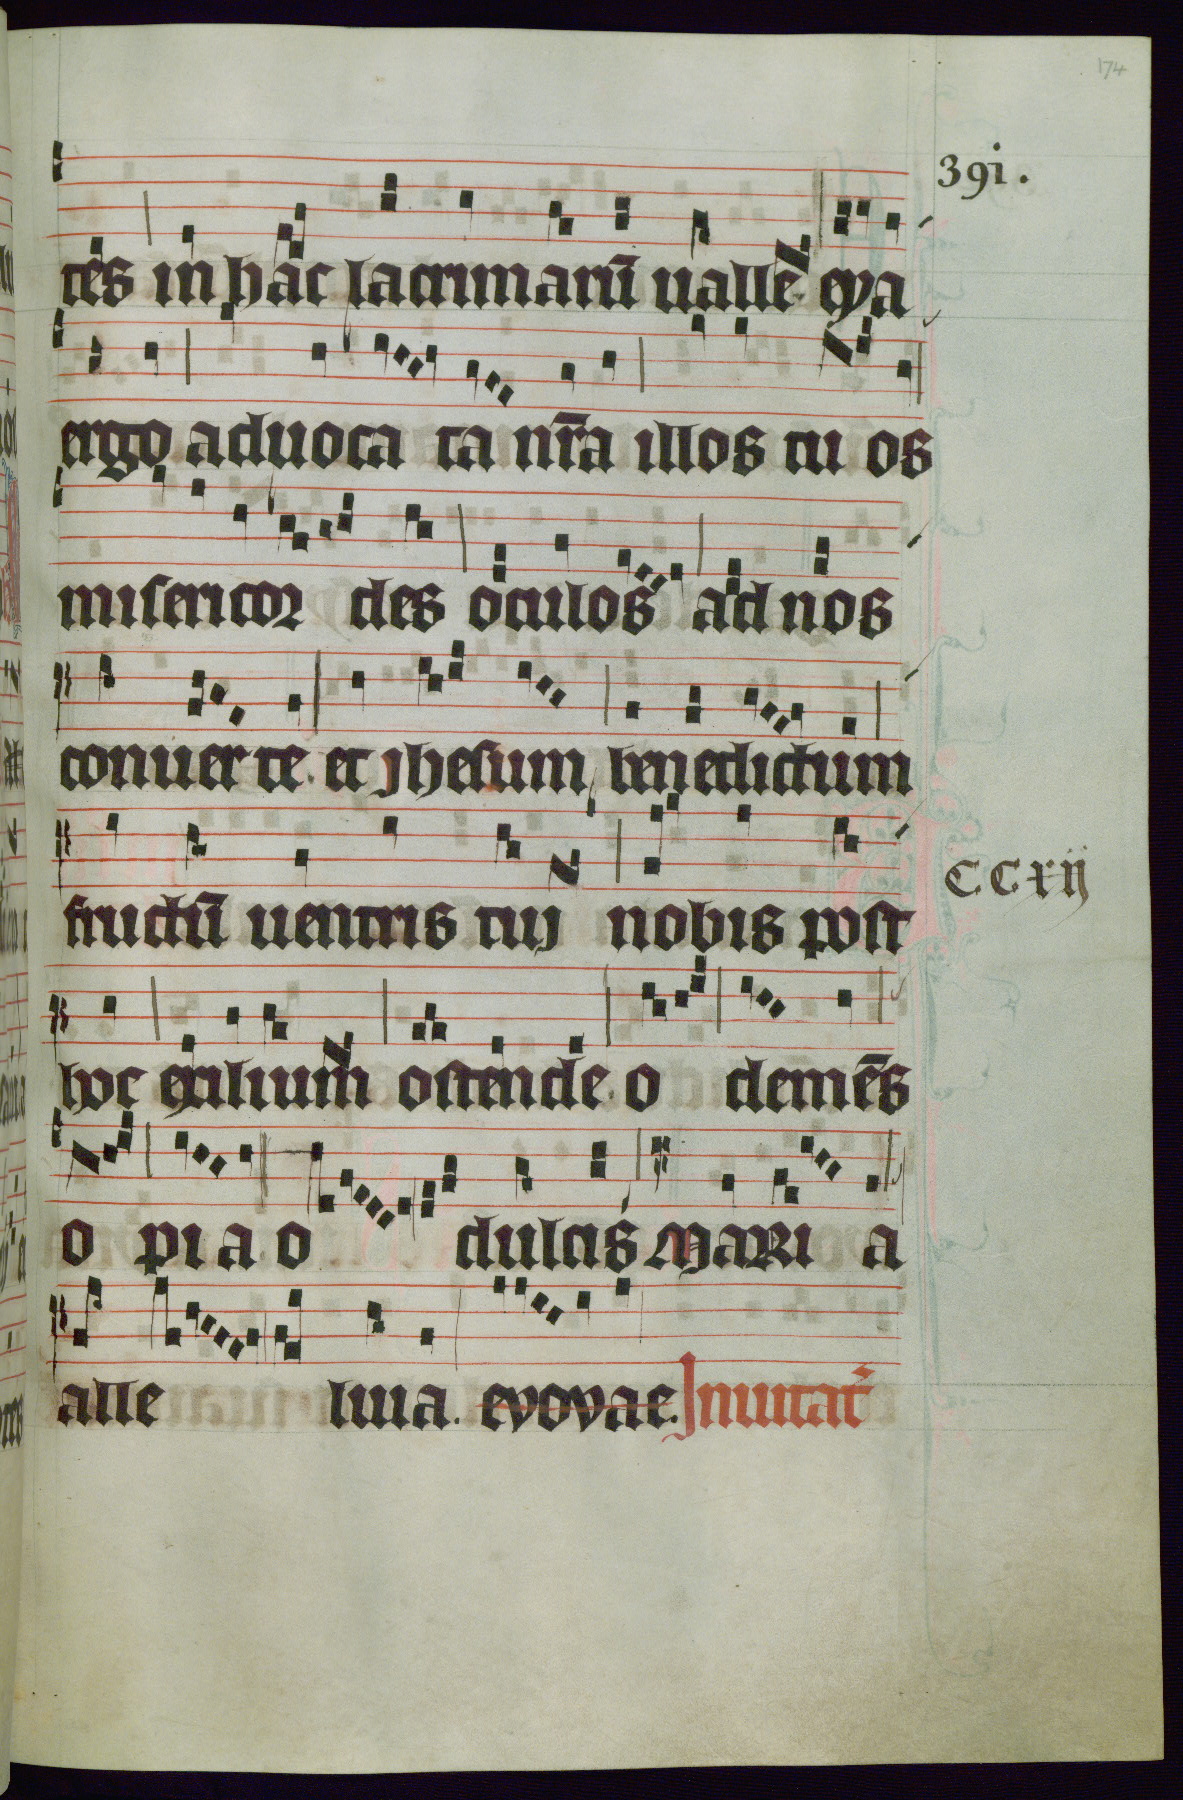 174
39i.
tes in hac lacrimarū ualle. eya
ergo aduoca ta nr̄a illos tu os
misericor des oculos ad nos
conuer te. et jhesum benedictum
CCxij
fructū uentris tuj nobis post
hoc exilium ostende. o clemēs
o pi a o dulcis MARI a
alle luia. evovae. Inuitat᷑